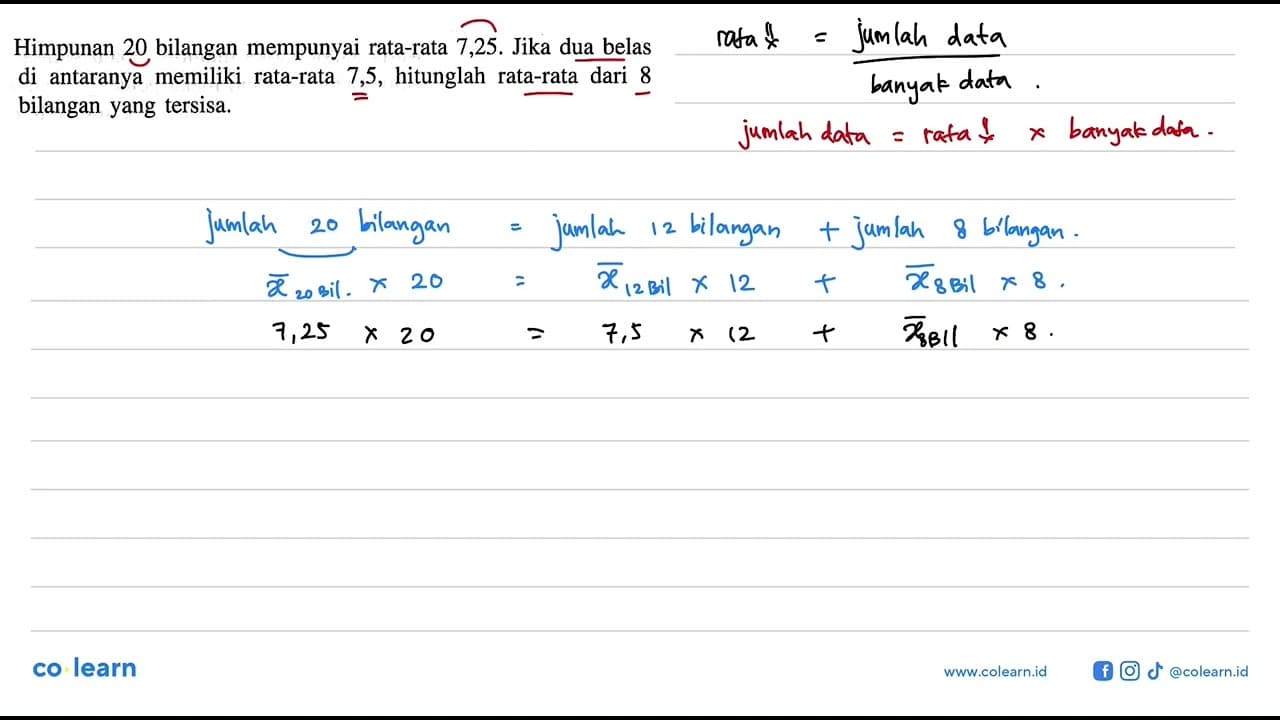 Himpunan 20 bilangan mempunyai rata-rata 7,25. Jika dua belas
di antaranya memiliki rata-rata 7,5, hitunglah rata-rata dari 8
bilangan yang tersisa.
rata² = jumlah data
banyak data .
jumlah data = rata² × banyak data .
jumlah 20 bilangan = jumlah 12 bilangan + jumlah 8 bilangan .
x̄ 20 Bil. × 20 = x̄ 12 Bil × 12 + x̄ 8 Bil × 8 .
7,25 × 20 = 7,5 × 12 + x̄ 8 Bil × 8 .
co learn
www.colearn.id
@colearn.id